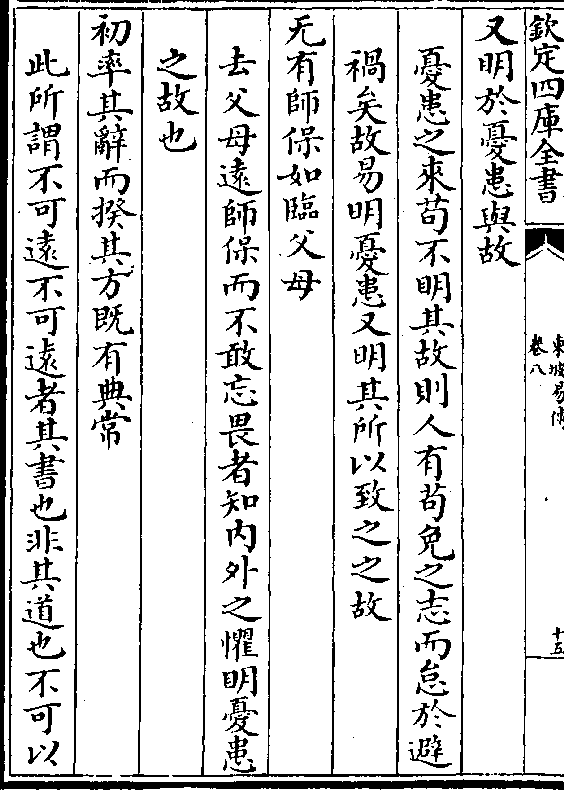 欽定四庫全書
東坡易傳
卷八
十五
又明於憂患與故
憂患之來苟不明其故則人有苟免之志而怠於避
禍矣故易明憂患又明其所以致之之故
无有師保如臨父母
去父母遠師保而不敢忘畏者知内外之懼明憂患
之故也
初率其辭而揆其方既有典常
此所謂不可遠不可遠者其書也非其道也不可以